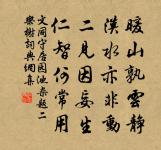 暖山孰雲靜
渼水亦非動
二見因妄生
仁智何常用
文同守居園池雜題二
樂榭詞典網集